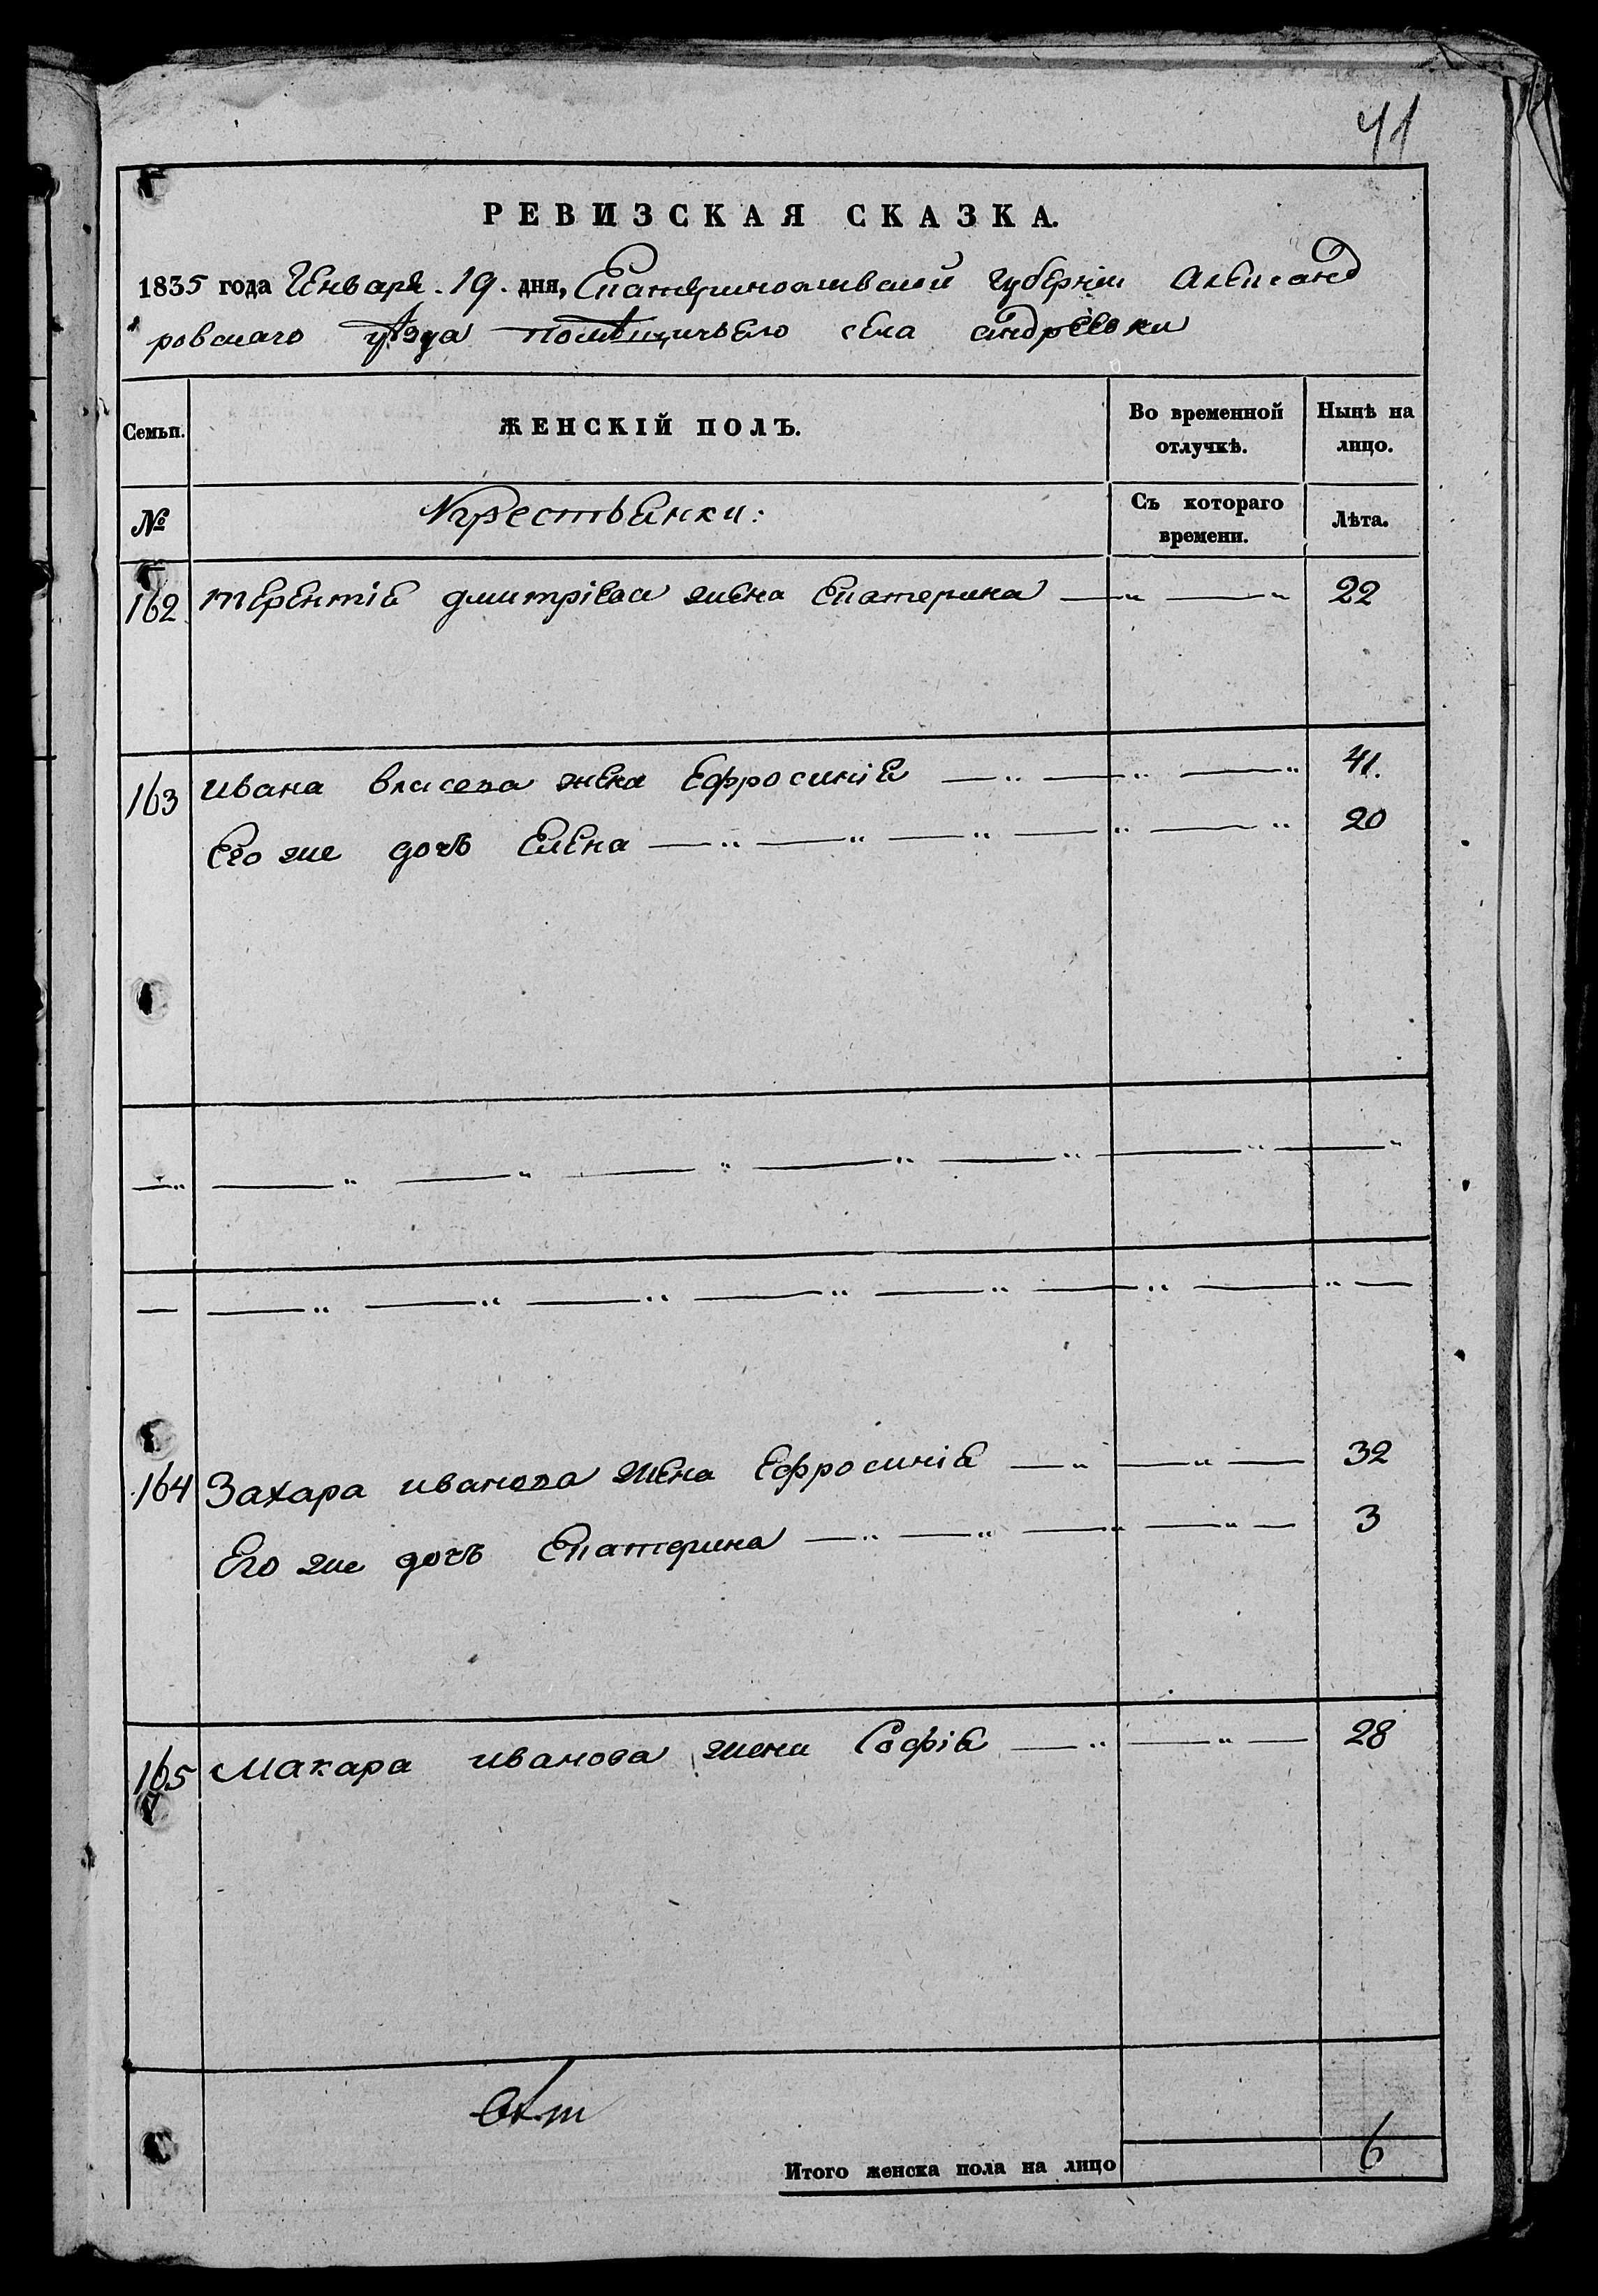 41
РЕВИЗСКАЯ СКАЗКА.
1835 года Генваря. 19. дня, Екатеринославской губерніи Александ
ровскаго уѣзда помѣщичьего села андреевки
Семьи. ЖЕНСКІЙ ПОЛЪ. Во временной отлучкѣ. Нынѣ на лицо.
№ Крестьянки: Съ котораго времени. Лѣта.
162 терентія дмитріева жена Екатерина — „ — „ 22
163 ивана власова жена Ефросинія — „ — „ — „ 41.
Его же дочь Елена — „ — „ — „ — „ — „ 20
— „ — „ — „ — „ — „ — „ — „ — „
— — „ — „ — „ — „ — „ — „ — „ —
164 Захара иванова жена Ефросинія — „ — „ — 32
Его же дочь Екатерина — „ — „ — „ — „ — 3
165 Макара иванова жена Софія — „ — „ — 28
Итого женска пола на лицо 6